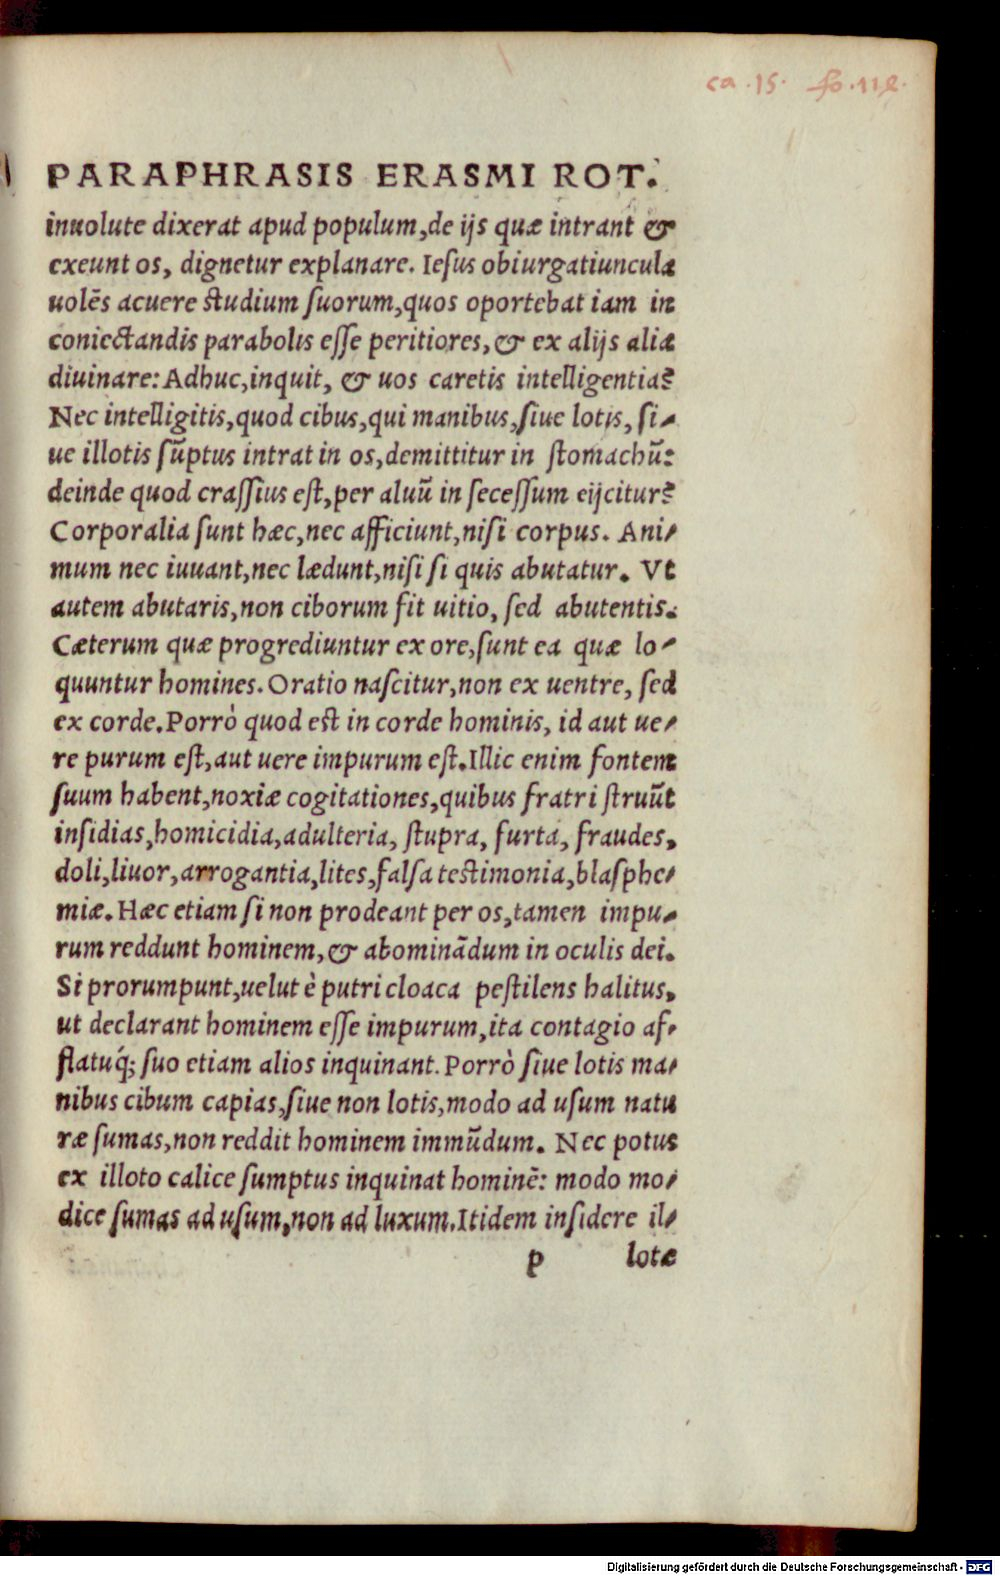 ca .15. fo .112.
PARAPHRASIS ERASMI ROT.
inuolute dixerat apud populum,de ijs quæ intrant &
exeunt os, dignetur explanare. Iesus obiurgatiuncula
uolēs acuere studium suorum,quos oportebat iam in
coniectandis parabolis esse peritiores,& ex alijs alia
diuinare: Adhuc,inquit, & uos caretis intelligentia?
Nec intelligitis,quod cibus,qui manibus,siue lotis, si-
ue illotis sūptus intrat in os,demittitur in stomachū:
deinde quod crassius est,per aluū in secessum eijcitur?
Corporalia sunt hæc,nec afficiunt,nisi corpus. Ani-
mum nec iuuant,nec lædunt,nisi si quis abutatur. Vt
autem abutaris,non ciborum fit uitio, sed abutentis.
Cæterum quæ progrediuntur ex ore,sunt ea quæ lo-
quuntur homines. Oratio nascitur,non ex uentre, sed
ex corde.Porrò quod est in corde hominis, id aut ue-
re purum est,aut uere impurum est.Illic enim fontem
suum habent,noxiæ cogitationes,quibus fratri struūt
insidias,homicidia,adulteria, stupra, furta, fraudes,
doli,liuor,arrogantia,lites,falsa testimonia,blasphe-
miæ. Hæc etiam si non prodeant per os,tamen impu-
rum reddunt hominem,& abominādum in oculis dei.
Si prorumpunt,uelut è putri cloaca pestilens halitus,
ut declarant hominem esse impurum,ita contagio af-
flatuq́; suo etiam alios inquinant. Porrò siue lotis ma-
nibus cibum capias,siue non lotis,modo ad usum natu
ræ sumas,non reddit hominem immūdum. Nec potus
ex illoto calice sumptus inquinat hominē: modo mo-
dice sumas ad usum,non ad luxum.Itidem insidere il-
p lotæ
Digitalisierung gefördert durch die Deutsche Forschungsgemeinschaft - DFG